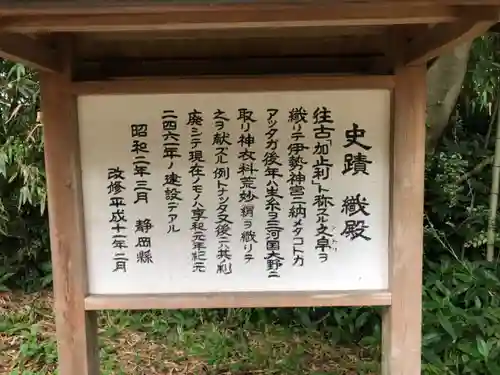 史蹟 織殿
往古「加止利」ト称スル文卓ヲ
織リテ伊勢神宮ニ納メタコトカ
アツタガ後年八生糸ヲ三河国大野ニ
取リ神衣料荒妙絹ヲ織リテ
之ヲ献ズル例トナツタ又後ニハ其制
廃シテ現在ノモノハ享和元年紀元
二四六一年ノ建設デアル
昭和二年三月 静岡縣
改修平成十一年二月